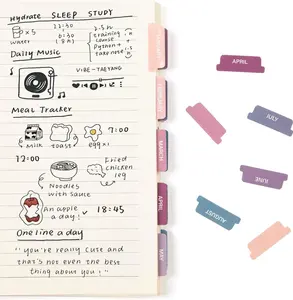 Hydrate SLEEP STUDY
x5
water
Daily Music
training
course
Python +
take note
VIBE - TAEYANG
Meal Tracker
7:00
Milk toast egg x1
12:00
Fried
chicken
leg
Noodles
with sauce
An apple
a day!
18:45
One line a day
"you're really cute and
that's not even the best
thing about you!"
MARCH
APRIL
MAY
APRIL
JULY
JUNE
AUGUST